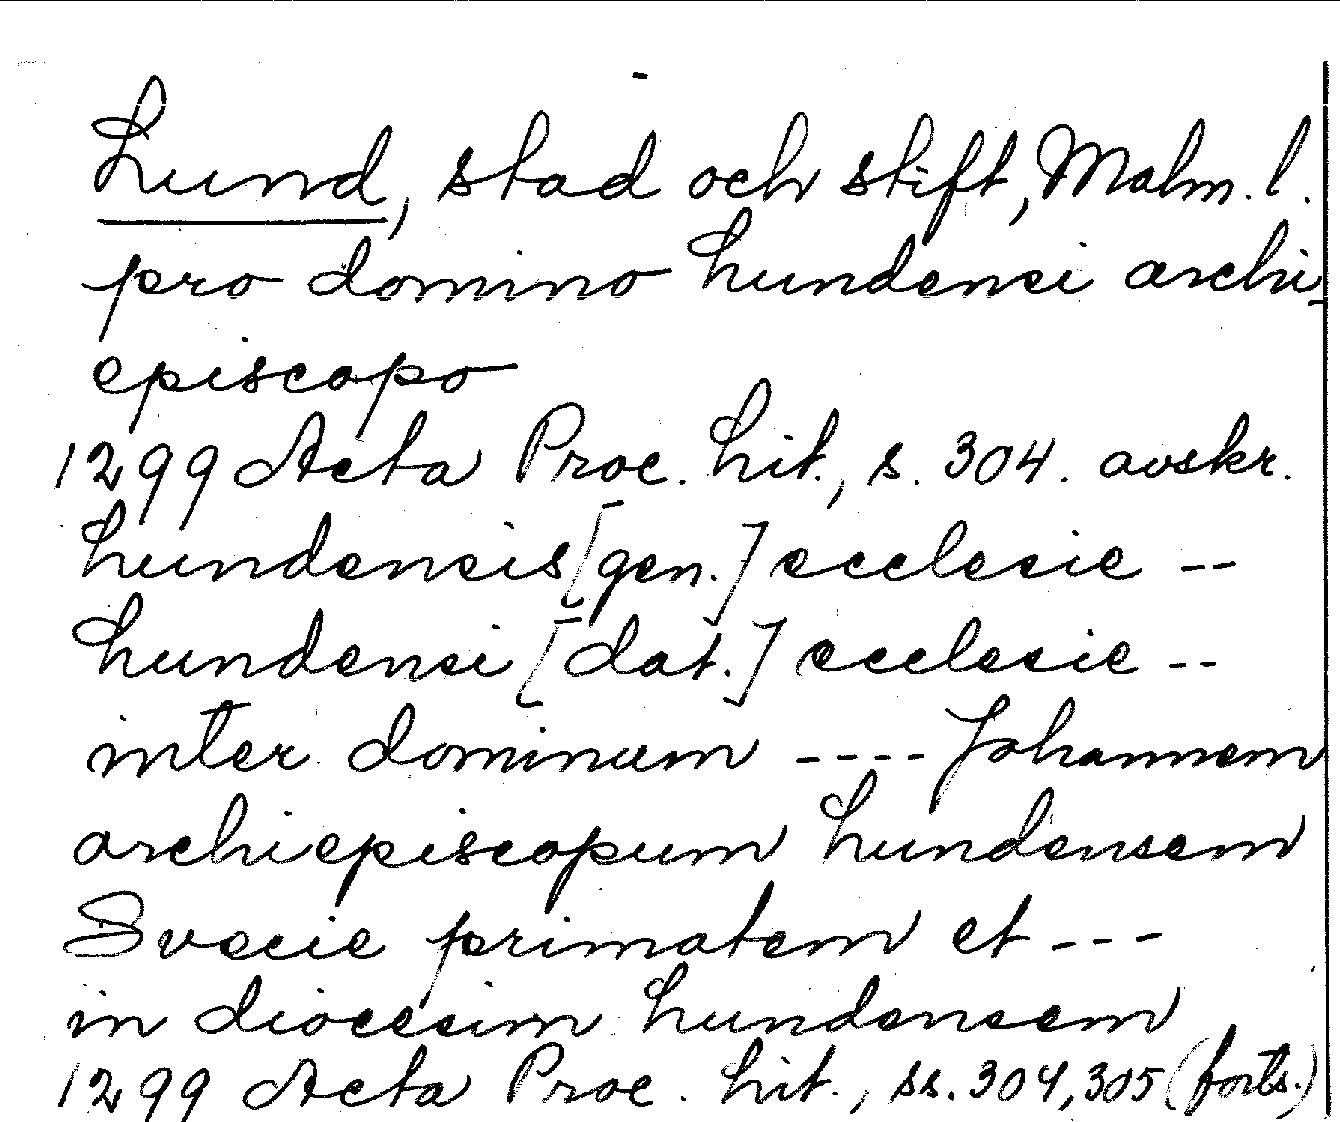 Lund, stad och stift, Malm. l.
pro domino Lundensi archi-
episcopo
1299 Acta Proc. Lit., s. 304. avskr.
Lundensis [gen.] ecclesie --
Lundensi [dat.] ecclesie --
inter dominum ---- Johannem
archiepiscopum Lundensem
Svecie primatem et ---
in diocesim Lundensem
1299 Acta Proc. Lit., ss. 304, 305 (forts.)